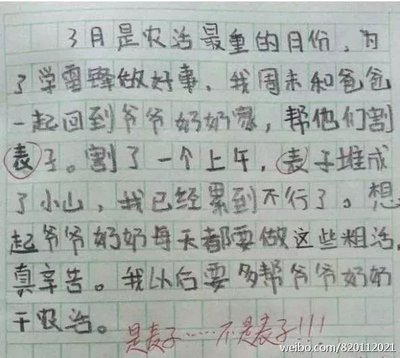 3月是农活最重的月份，为
了学雷锋做好事，我周末和爸爸
一起回到爷爷奶奶家，帮他们割
表子。割了一个上午，表子堆成
了小山，我已经累到不行了。想
起爷爷奶奶每天都要做这些粗活，
真辛苦。我以后要多帮爷爷奶奶
干农活。
是麦子……不是表子!!!
weibo.com/820112021